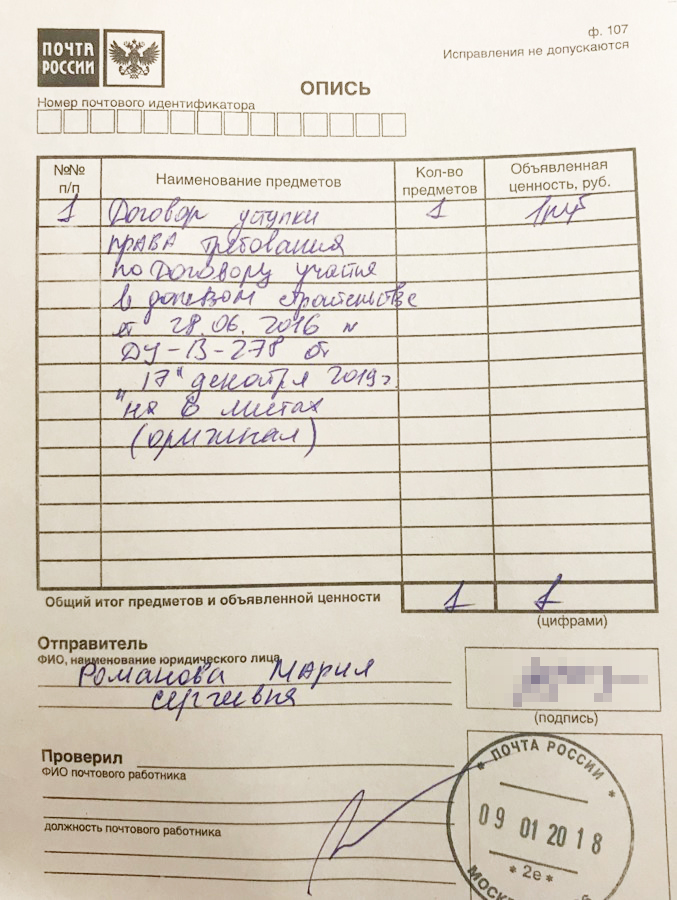 ПОЧТА
РОССИИ
ф. 107
Исправления не допускаются
ОПИСЬ
Номер почтового идентификатора
№№ п/п
Наименование предметов
Кол-во предметов
Объявленная ценность, руб.
1 Договор уступки 1 1 руб
права требования
по Договору участия
в долевом строительстве
от 28.06.2016 №
ДУ-В-278 от
"17" декабря 2019 г.
на 8 листах
(оригинал)
Общий итог предметов и объявленной ценности 1 1
(цифрами)
Отправитель
ФИО, наименование юридического лица
Романова Мария
Сергеевна
(подпись)
Проверил
ФИО почтового работника
должность почтового работника
* ПОЧТА РОССИИ *
09 01 20 18
* 2е *